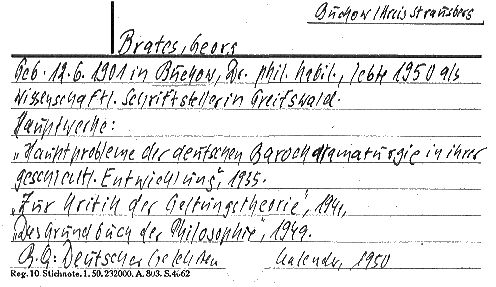 Buckow / Kreis Strausberg
Brates, Georg
Geb. 12.6.1901 in Buckow, Dr. phil. habil., lebte 1950 als
wissenschaftl. Schriftsteller in Greifswald.
Hauptwerke:
"Hauptprobleme der deutschen Barockdramaturgie in ihrer
geschichtl. Entwicklung", 1935.
"Zur Kritik der Geltungstheorie", 1941,
"Das Grundbuch der Philosophie", 1949.
Deutscher Gelehrten Kalender, 1950
Reg. 10 Stichnote. 1. 50. 232000. A. 803. S. 4662